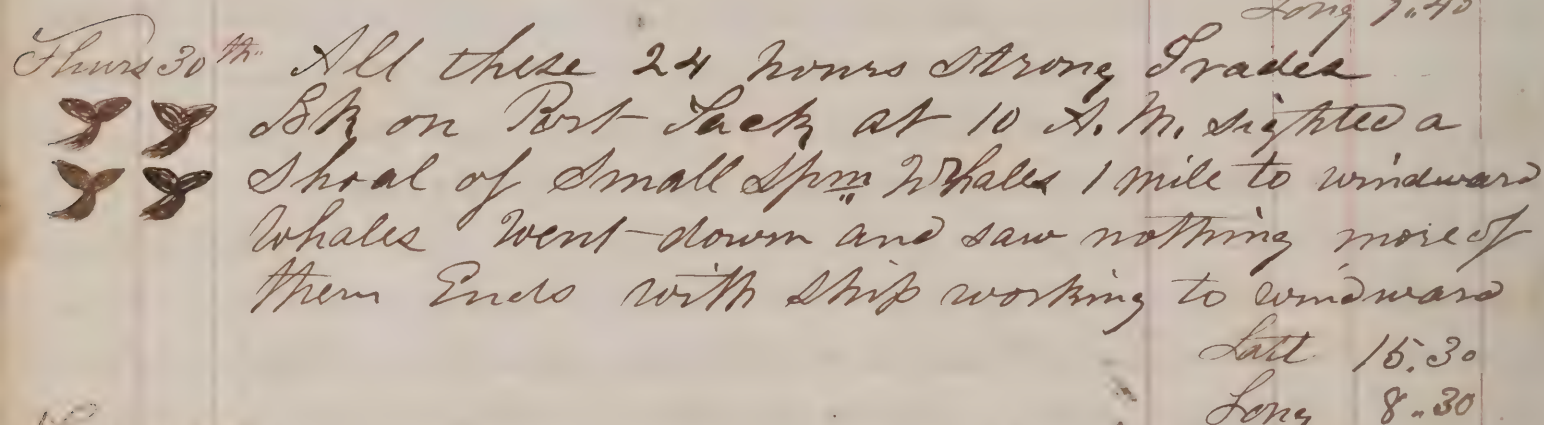 Long 7"40
Thurs 30th All these 24 hours strong Trades
Bk on Port Tack at 10 A.M. sighted a
Shoal of Small Spm Whales 1 mile to windward
Whales Went down and saw nothing more of
them Ends with ship working to windward
Latt 15.30
Long 8"30